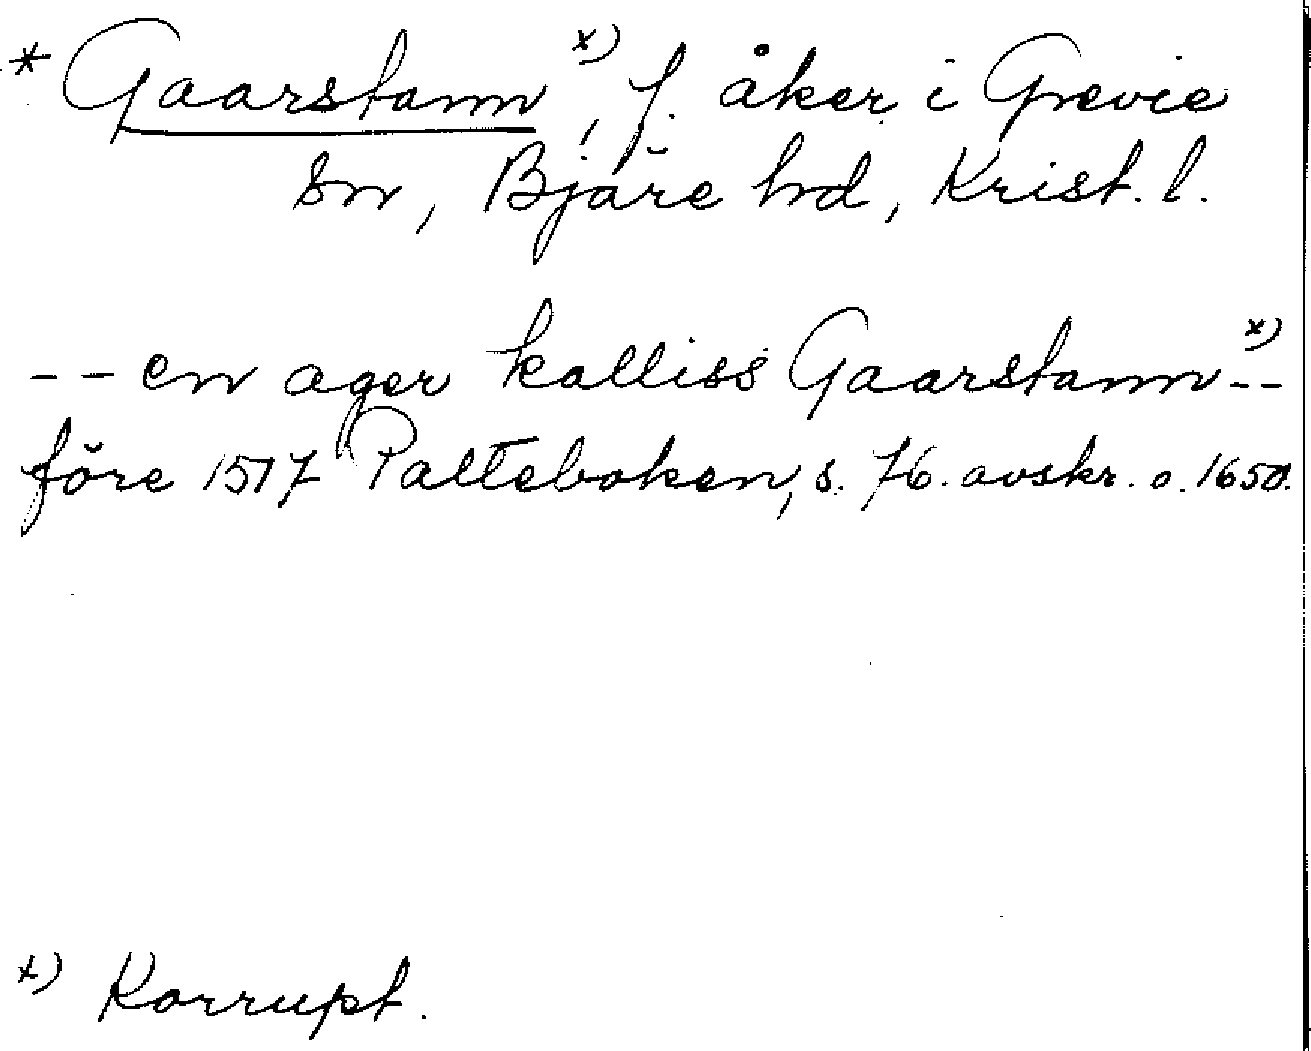 * Gaarstann x), f. åker i Grevie
sn, Bjäre hd, Krist. l.
-- en ager kalliss Gaarstann x) --
före 1517 Palteboken, s. 76. avskr. o. 1650.
x) Korrupt.